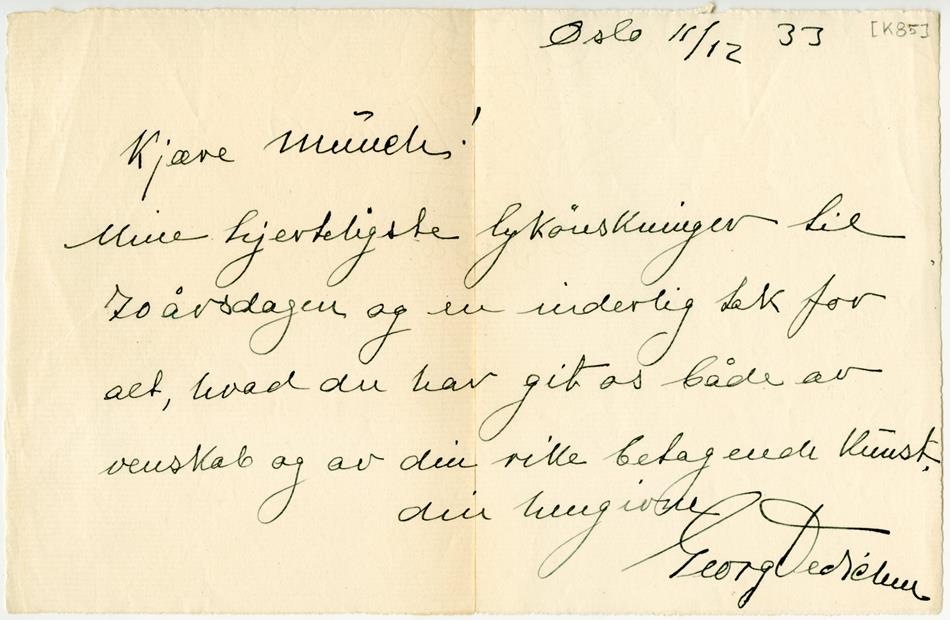 Oslo 11/12 33 [K85]
Kjære Munch!
Mine hjerteligste lykönskninger til
70 årsdagen og en inderlig tak for
alt, hvad du har git os både av
venskab og av din rike betagende Kunst.
din hengivne
Georg Dedichen